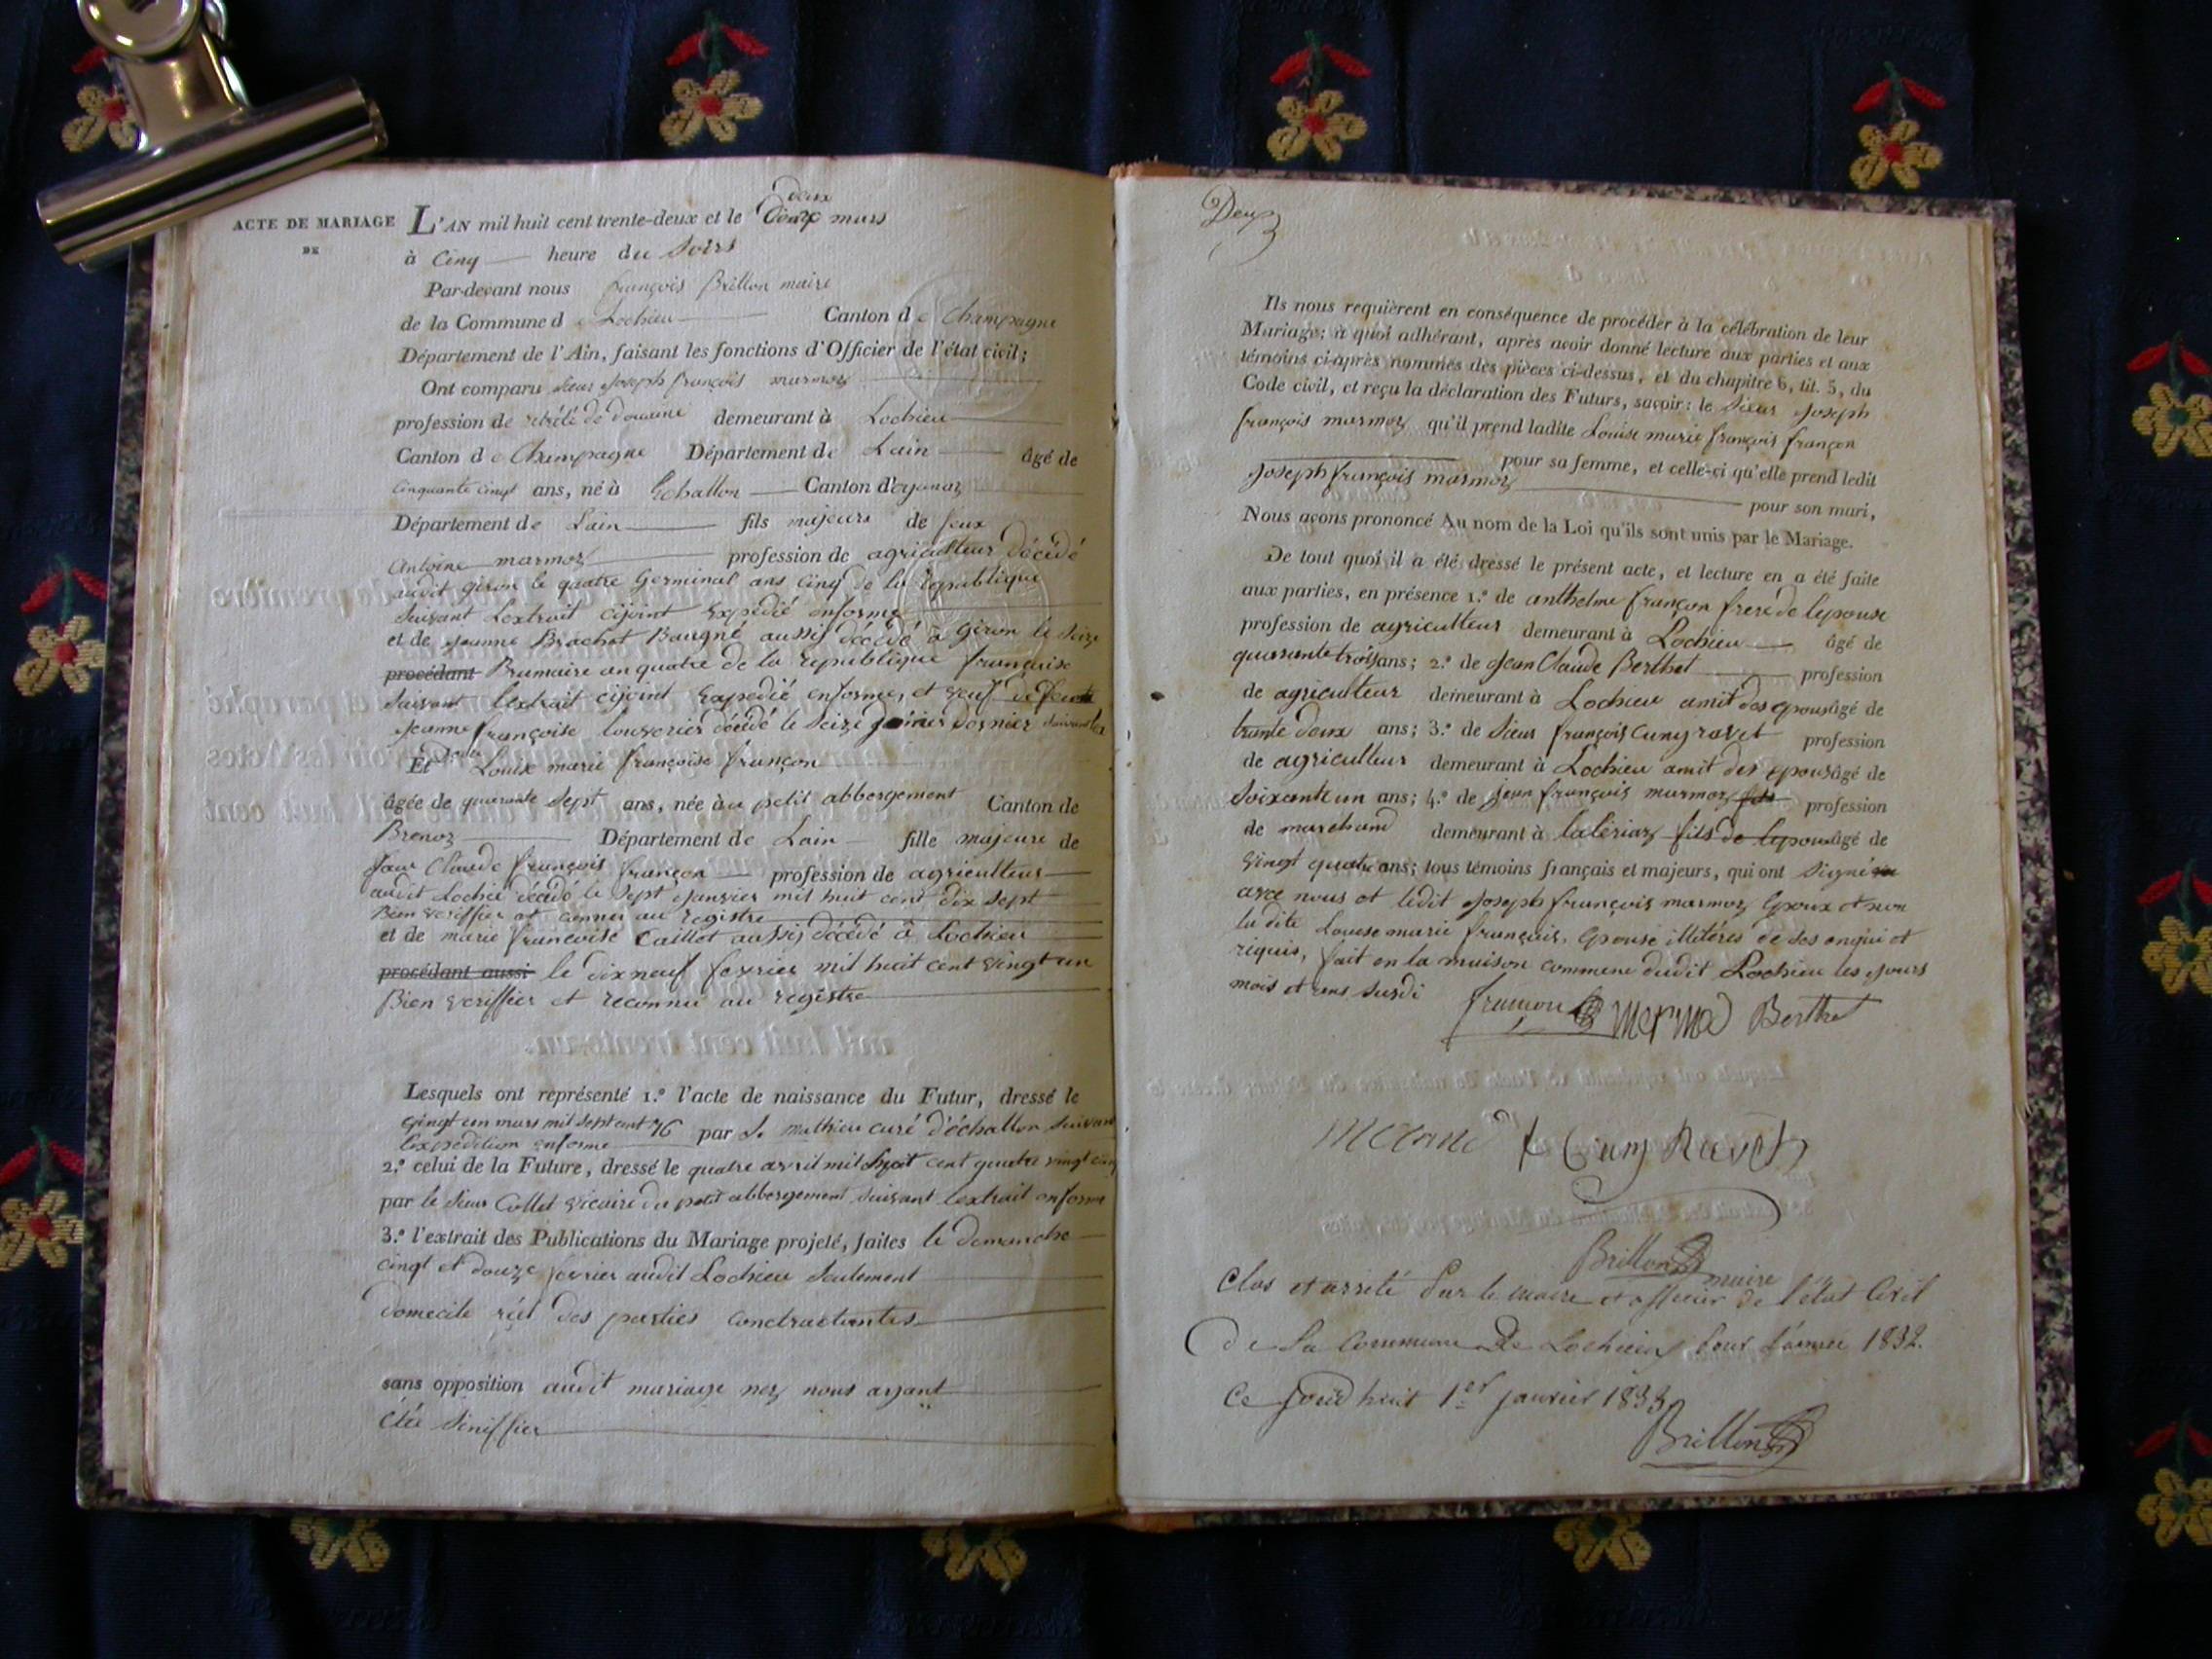 ACTE DE MARIAGE
DE
L'AN mil huit cent trente-deux et le deux mars
à Cinq heure du Soirs
Par-devant nous françois Brillon maire
de la Commune de Lochieu Canton de Champagne
Département de l'Ain, faisant les fonctions d'Officier de l'état civil;
Ont comparu Sieur Joseph françois marmoz
profession de rétrété de douanne demeurant à Lochieu
Canton de Champagne Département de Lain âgé de
Cinquante cinqt ans, né à Echallon Canton d'oyonaz
Département de Lain fils majeurs de feux
Antoine marmoz profession de agriculteur décédé
audit giron le quatre Germinal ans Cinq de la republique
Suivant Lextrait cijoint Expédié enforme
et de Jeanne Brachet Baugné aussis décédé à Giron le Seize
procédant Brumaire an quatre de la republique française
Suivant lextrait cijoint Expedié enforme, et veuf de feux
Jeanne françoise louverier décédé le Seize dernier
Et Louise marie françoise françon
âgée de quarante Sept ans, née au petit abbergement Canton de
Brenoz Département de Lain fille majeure de
feux Claude françois françon profession de agriculteur
audit Lochieu décédé le Sept Janvier mil huit cent dix Sept
Bien veriffier et connus au registre
et de marie francoise Caillot aussis décédé à Lochieu
procédant aussi le dixneuf fevrier mil huit cent vingt un
Bien veriffier et reconnu au registre
Lesquels ont représenté 1.º l'acte de naissance du Futur, dressé le
vingt un mars mil sept cent 76 par S. mathieu curé d'échallon Suivant
lexpedition enforme
2.º celui de la Future, dressé le quatre avril mil Sept cent quatre vingt cinq
par le Sieur Collet vicaire du petit abbergement Suivant lextrait enforme
3.º l'extrait des Publications du Mariage projeté, faites le demanche
cinqt et douze fevrier audit Lochieu Seulement
domecile réel des parties contractantes
sans opposition audit mariage nez nous ayant
étée Siniffier
Deux
Ils nous requièrent en conséquence de procéder à la célébration de leur
Mariage; à quoi adhérant, après avoir donné lecture aux parties et aux
témoins ci-après nommés des pièces ci-dessus, et du chapitre 6, tit. 5, du
Code civil, et reçu la déclaration des Futurs, savoir: le Sieur Joseph
françois marmoz qu'il prend ladite Louise marie françois françon
pour sa femme, et celle-ci qu'elle prend ledit
Joseph françois marmoz pour son mari,
Nous avons prononcé Au nom de la Loi qu'ils sont unis par le Mariage.
De tout quoi il a été dressé le présent acte, et lecture en a été faite
aux parties, en présence 1.º de anthelme françon frere de lepouse
profession de agriculteur demeurant à Lochieu âgé de
quarante trois ans; 2.º de Jean Claude Berthet profession
de agriculteur demeurant à Lochieu amit des epous âgé de
trante deux ans; 3.º de Sieur françois Cuny ravet profession
de agriculteur demeurant à Lochieu amit des epous âgé de
Soixante un ans; 4.º de Jean françois marmoz fils profession
de marchand demeurant à laleriaz fils de lepous âgé de
vingt quatre ans; tous témoins français et majeurs, qui ont Signé
avec nous et ledit Joseph françois marmoz Epoux et non
la dite Louise marie français, Epouse illitérés de ses enqui et
riquis, fait en la maison commune dudit Lochieu les Jours
mois et ans susdi
françon mermo Berthet
mermo Cuny Ravet
Brillon maire
Clos et arreté par le maire et officier de l'état Civil
de la commune de Lochieu pour l'année 1832.
Ce jourd huit 1er janvier 1833
Brillon